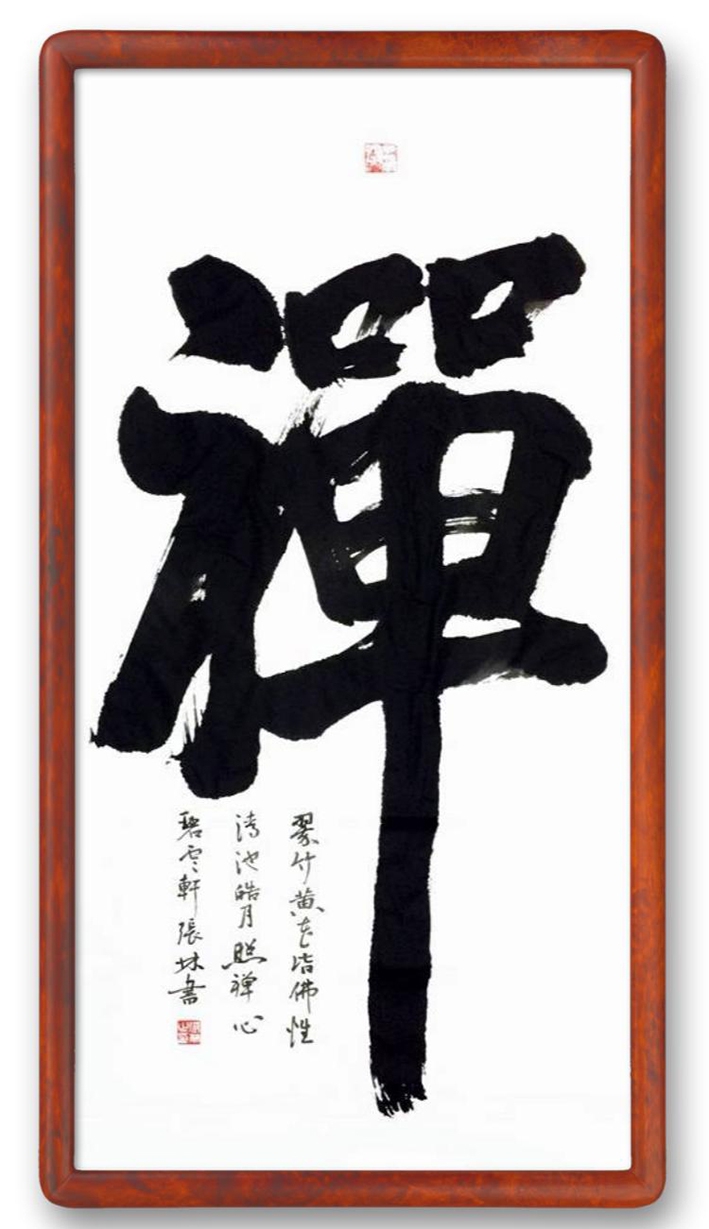 禪
翠竹黄花皆佛性
清池皓月照禅心
碧雲軒張林書